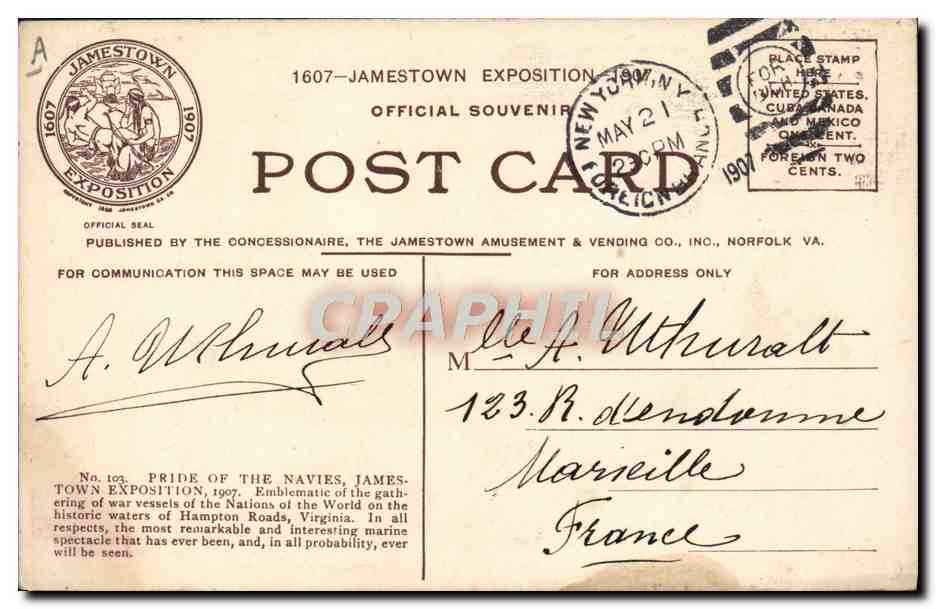 A
JAMESTOWN
1607
1907
EXPOSITION
OFFICIAL SEAL
1607—JAMESTOWN EXPOSITION—1907
OFFICIAL SOUVENIR
POST CARD
NEW YORK, N.Y.
MAY 21
PM
FOREIGN BRANCH
1907
FOR
PLACE STAMP
HERE
UNITED STATES,
CUBA, CANADA
AND MEXICO
ONE CENT.
FOREIGN TWO
CENTS.
PUBLISHED BY THE CONCESSIONAIRE, THE JAMESTOWN AMUSEMENT & VENDING CO., INC., NORFOLK VA.
FOR COMMUNICATION THIS SPACE MAY BE USED
FOR ADDRESS ONLY
CRAPHIL
A. Uthuralt
Mlle A. Uthuralt
123. R. d'endoume
Marseille
France
No. 103. PRIDE OF THE NAVIES, JAMES-
TOWN EXPOSITION, 1907. Emblematic of the gath-
ering of war vessels of the Nations of the World on the
historic waters of Hampton Roads, Virginia. In all
respects, the most remarkable and interesting marine
spectacle that has ever been, and, in all probability, ever
will be seen.